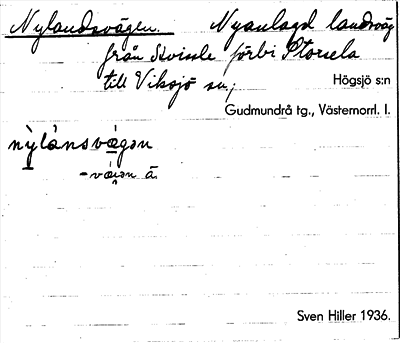 Nylandsvägen. Nyanlagd landsväg
från Stvissle förbi Storsela
till Viksjö sn;
Högsjö s:n
Gudmundrå tg., Västernorrl. l.
nỳlánsvǽgən
-vǽi̯ən ä.
Sven Hiller 1936.